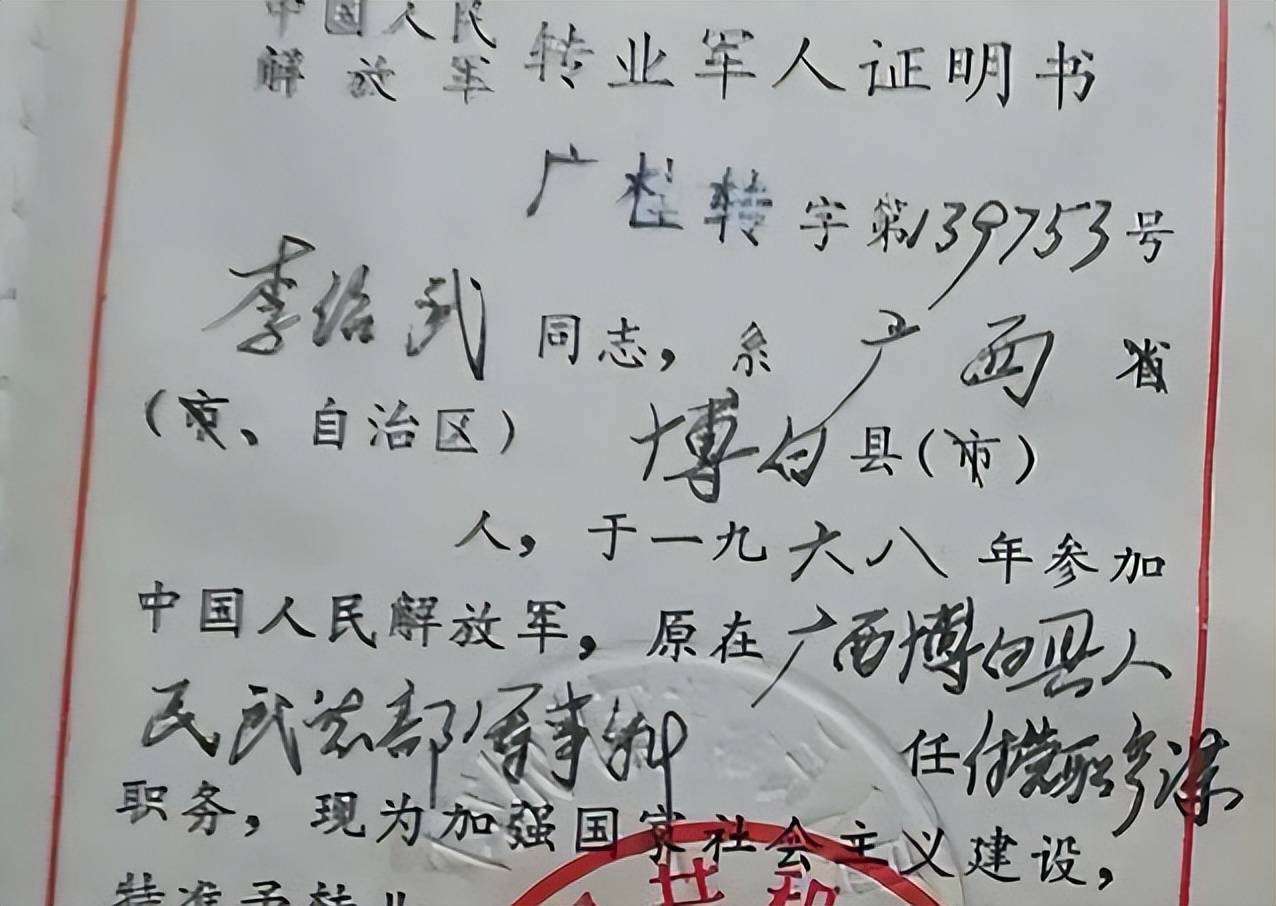 中国人民
解放军 转业军人证明书
广桂转字第139753号
李绍武同志，系广西省
（京、自治区）博白县（市）
人，于一九六八年参加
中国人民解放军，原在广西博白县人
民武装部军事科 任付营职参谋
职务，现为加强国家社会主义建设，
特准予转业
共和